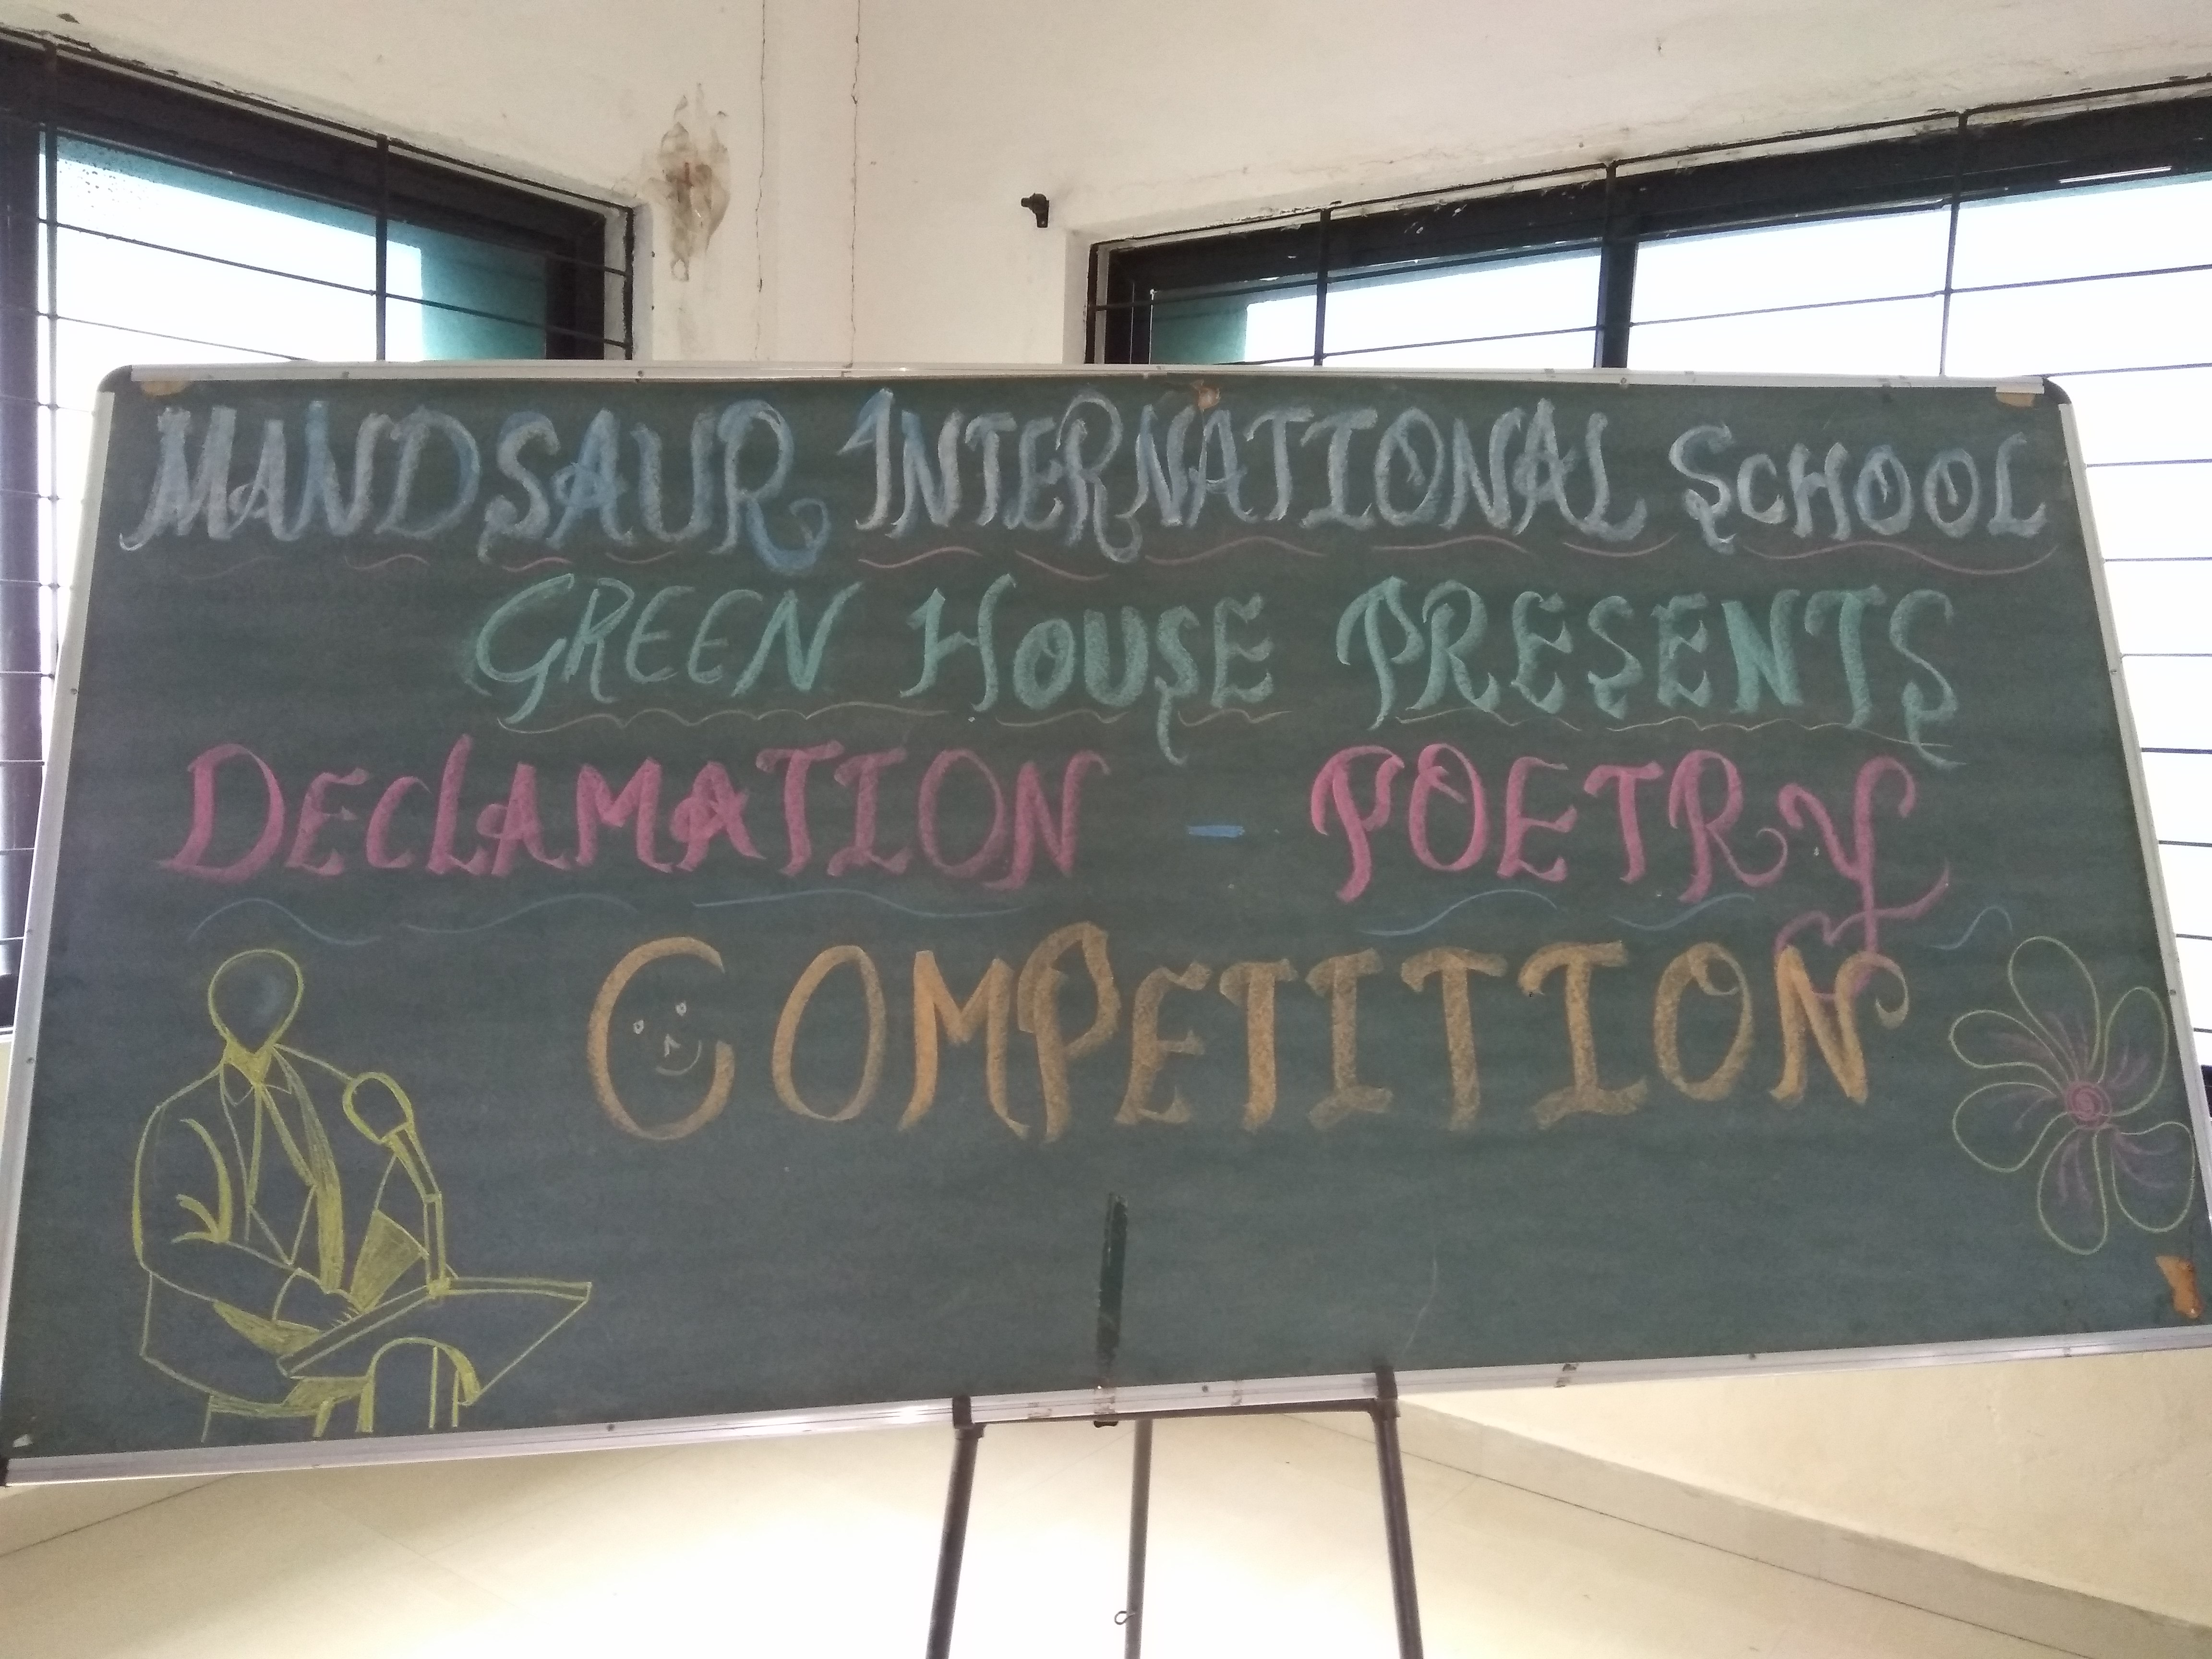 MANDSAUR INTERNATIONAL SCHOOL
GREEN HOUSE PRESENTS
DECLAMATION - POETRY
COMPETITION